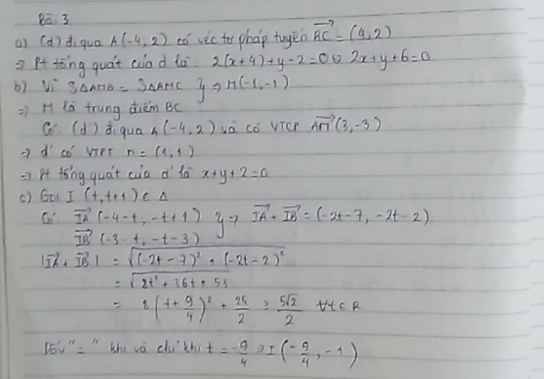 Bài 3
a) (d) đi qua A(-4,2) có véc tơ pháp tuyến BC = (4,2)
⇒ Pt tổng quát của d là 2(x+4)+y-2=0 ⇔ 2x+y+6=0
b) Vì S△AMB = S△AMC } ⇒ M(-1,-1)
⇒ M là trung điểm BC
Có (d') đi qua A(-4,2) và có VTCP AM(3,-3)
⇒ d' có VTPT n = (1,1)
⇒ Pt tổng quát của d' là x+y+2=0
c) Gọi I (t,t+1) ∈ Δ
Có IA (-4-t, -t+1) } ⇒ IA + IB = (-2t-7, -2t-2)
IB (-3-t, -t-3)
|IA + IB| = √(-2t-7)² + (-2t-2)²
= √8t² + 36t + 53
= 2(t+9/4)² + 25/2 ≥ 5√2/2 ∀t∈R
Dấu "=" khi và chỉ khi t = -9/4 ⇒ I(-9/4, -1)